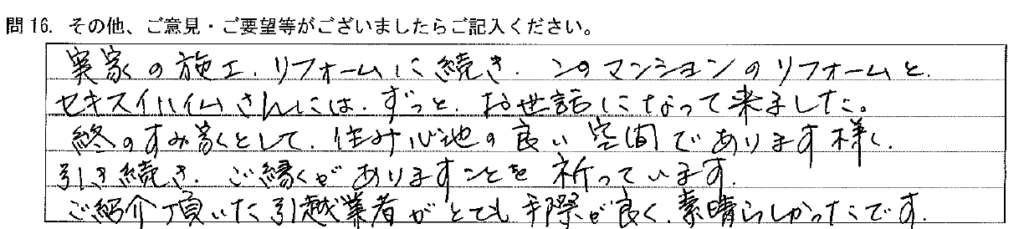 問16. その他、ご意見・ご要望等がございましたらご記入ください。
実家の施工、リフォームに続き、このマンションのリフォームと、
セキスイハイムさんには、ずっと、お世話になって来ました。
終のすみ家として、住み心地の良い空間であります様、
引き続き、ご縁がありますことを祈っています。
ご紹介頂いた引越業者がとても手際が良く、素晴らしかったです。